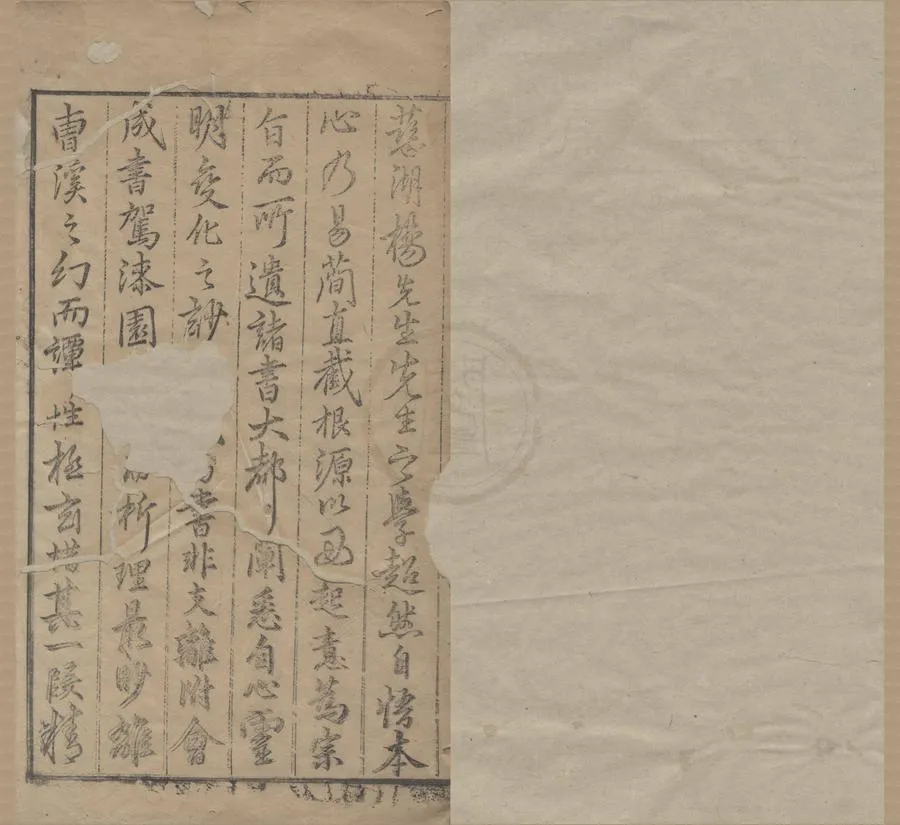 慈湖楊先生先生之學超然自悟本
心乃易簡直截根源以不起意為宗
旨而所遺諸書大都闡悉自心靈
明變化之妙書非支離附會
成書駕漆園析理最眇雖
曹溪之幻而譚性極玄措其一陵精